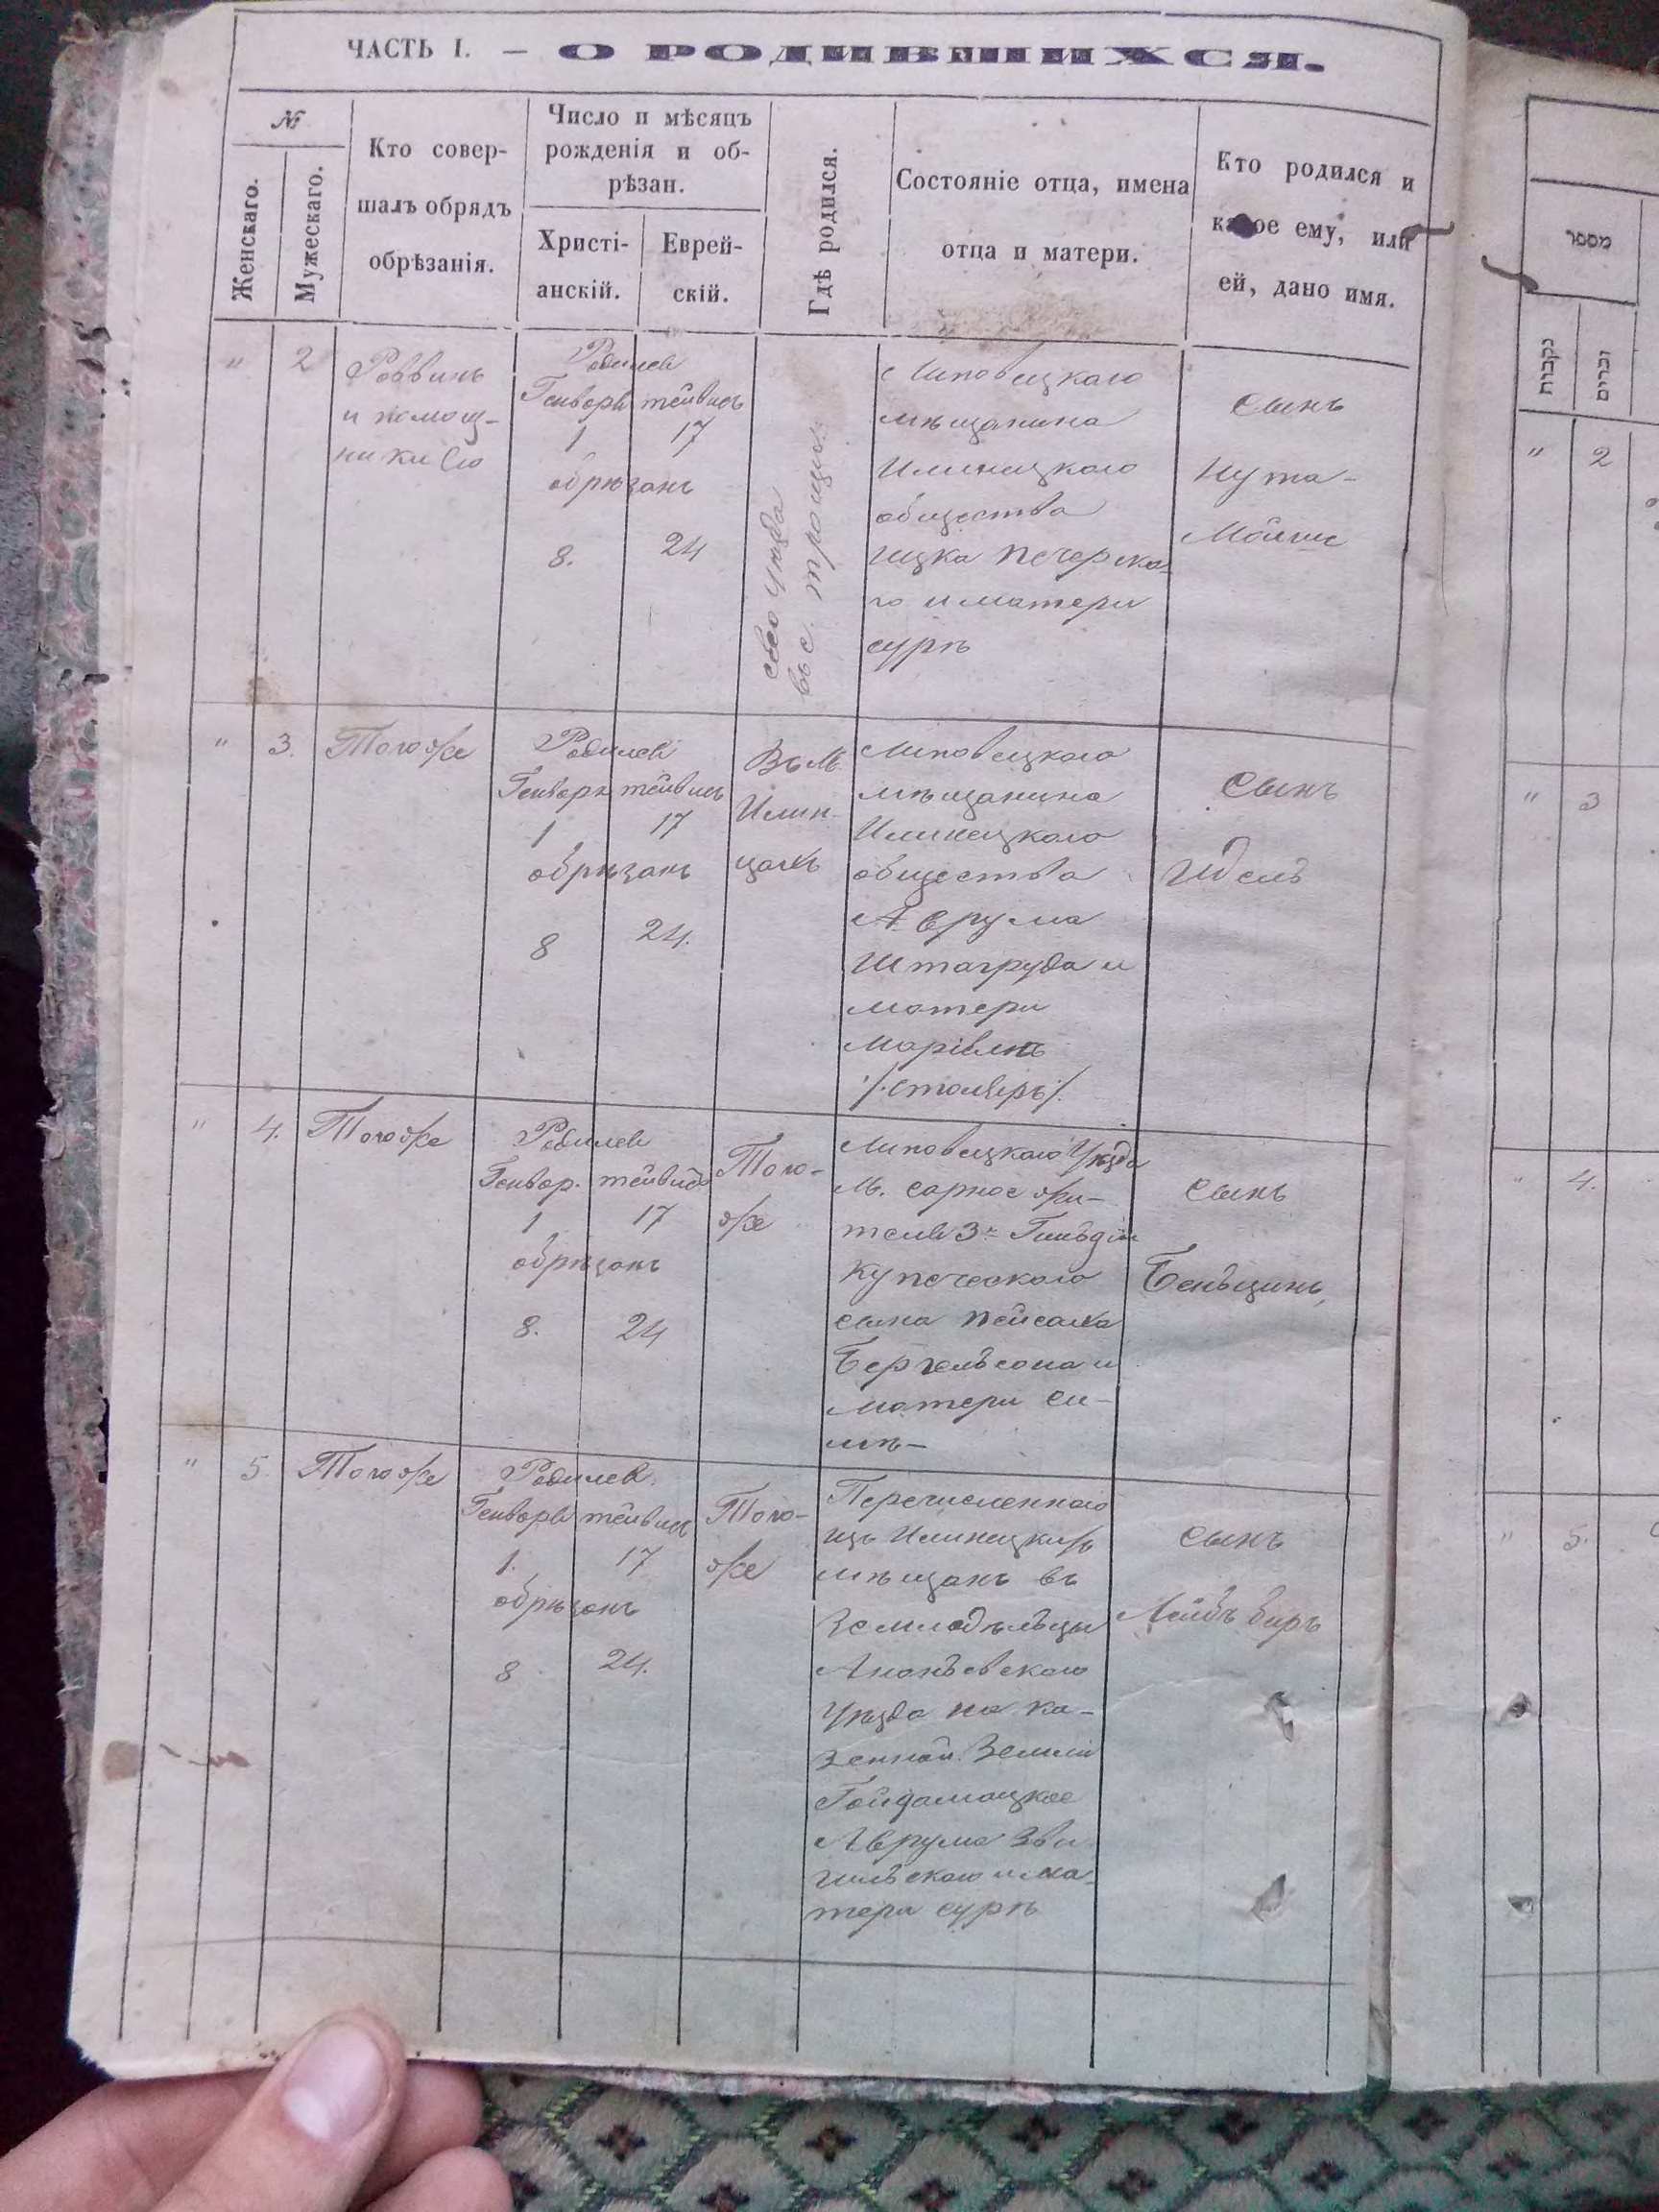 ЧАСТЬ I. — О РОДИВШИХСЯ.
№
Женскаго.
Мужескаго.
Кто совер-
шалъ обрядъ
обрѣзанія.
Число и мѣсяцъ
рожденія и об-
рѣзан.
Христі-
анскій.
Еврей-
скій.
Гдѣ родился.
Состояніе отца, имена
отца и матери.
Кто родился и
какое ему, или
ей, дано имя.
" 2
Раввинъ
и помощ-
ники его
Родился
Генворя тейвисъ
1 17
обрѣзанъ
8. 24
сего уѣзда
въ с.
Липовецкаго
мѣщанина
Илинецкаго
общества
Ицка Печерска-
го и матери
Суры
сынъ
Нута-
Мойше
" 3. Того же
Родился
Генворя тейвисъ
1 17
обрѣзанъ
8 24.
Въ М.
Илин-
цахъ
Липовецкаго
мѣщанина
Илинецкаго
общества
Аврума
Штагруда и
матери
/:столяръ:/
сынъ
Идель
" 4. Того же
Родился
Генвор. тейвисъ
1 17
обрѣзанъ
8. 24
Того-
же
Липовецкаго Уѣзда
М. Сарное жи-
теля 3й Гильдіи
купеческаго
сына Пейсаха
Бергельсона и
матери Си-
мѣ-
сынъ
Беньцинъ,
" 5. Того же
Родился.
Генворя тейвисъ
1. 17
обрѣзанъ
8 24.
Того-
же
Перечисленнаго
изъ Илинецкихъ
мѣщанъ въ
Земледѣльцы
Ананьевскаго
Уѣзда на ка-
зенной Земли
Гайдамацкое
Аврума Зви-
гильскаго и ма-
тери Сурѣ
сынъ
Лейбъ Биръ
מספר
נקבות
זכרים
" 2
" 3
" 4.
" 5.